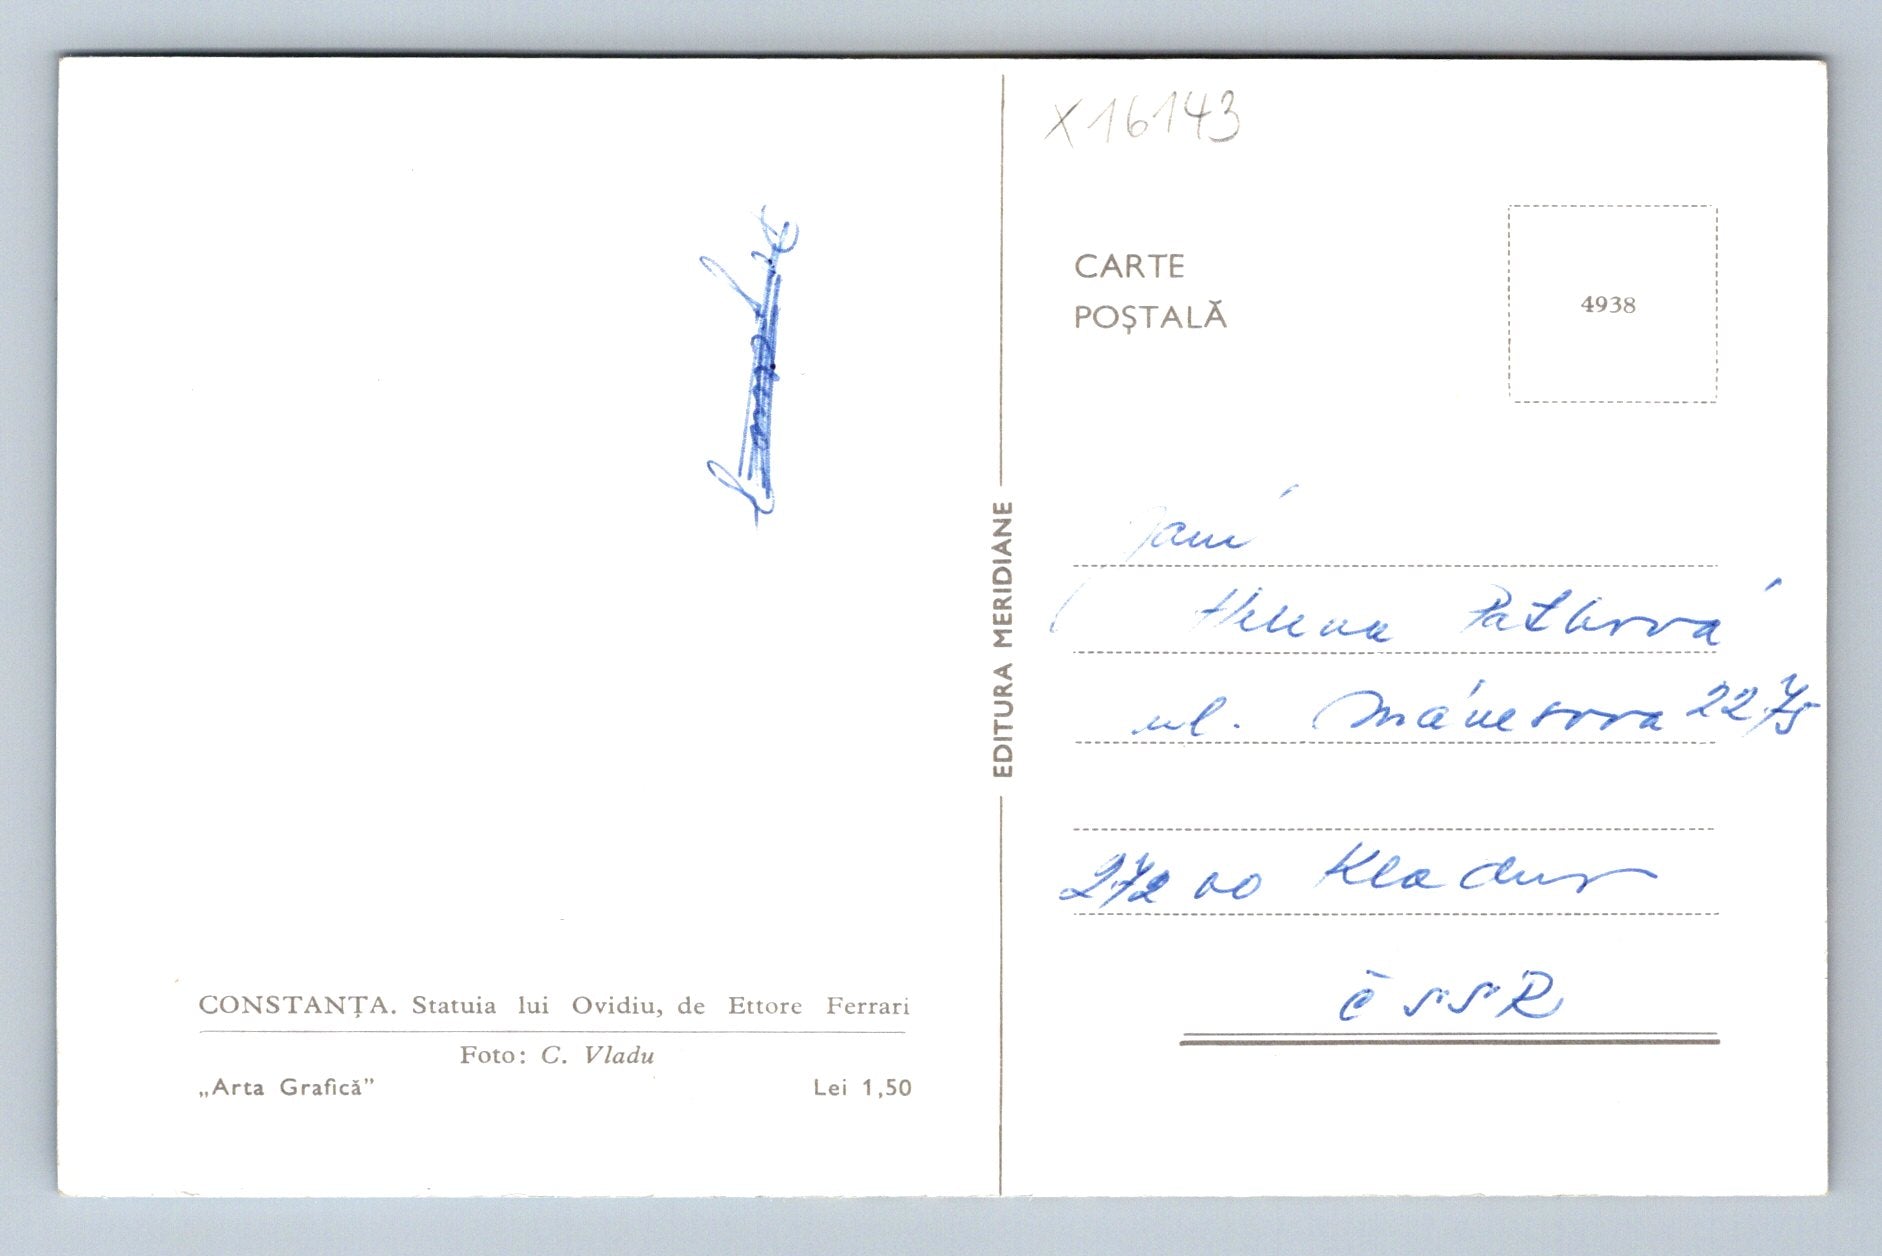 X16143
CARTE
POȘTALĂ
4938
EDITURA MERIDIANE
Helena
ul. Mánesova 2275
272 00 Kladno
ČSSR
CONSTANȚA. Statuia lui Ovidiu, de Ettore Ferrari
Foto: C. Vladu
„Arta Grafică”
Lei 1,50